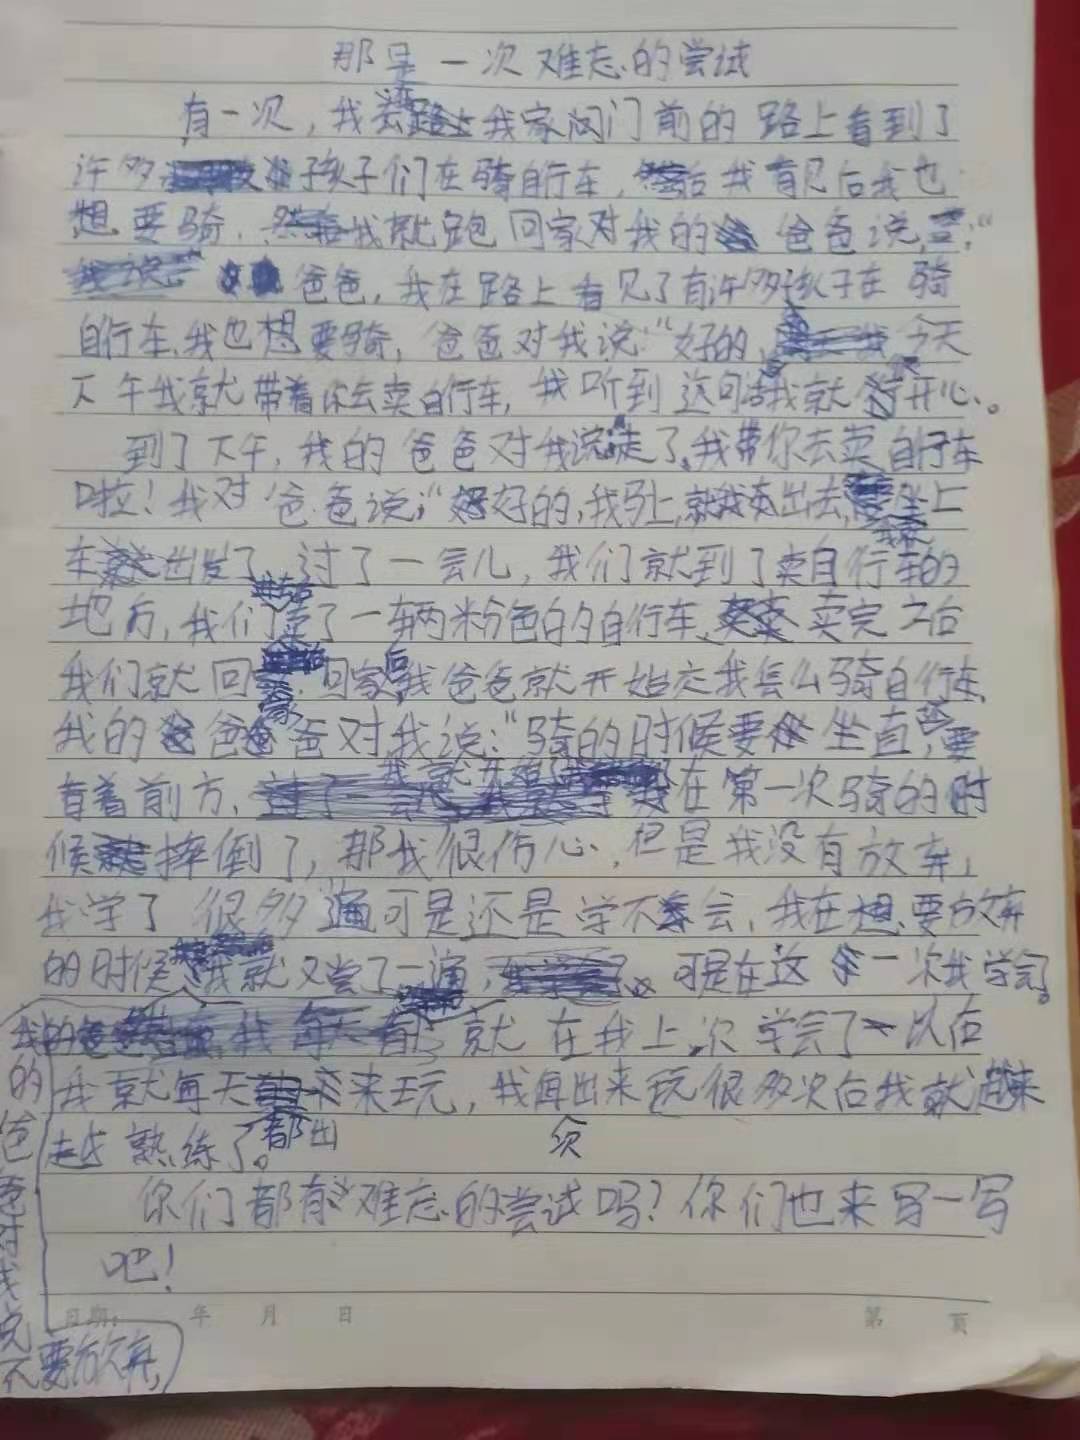 那是一次难忘的尝试
有一次，我去我家门前的路上看到了
许多孩子们在骑自行车，我看见后我也
想要骑，我就跑回家对我的爸爸说：“
爸爸，我在路上看见了有许多孩子在骑
自行车，我也想要骑，爸爸对我说：“好的，今天
下午我就带着你去卖自行车，我听到这句话我就开心。
到了下午，我的爸爸对我说走了，我带你去卖自行车
啦！我对爸爸说：“好的，我马上就出去，坐上
车出发了，过了一会儿，我们就到了卖自行车的
地方，我们卖了一辆粉色的自行车，卖完之后
我们就回家，回家后我爸爸就开始我怎么骑自行车，
我的爸爸对我说：“骑的时候要坐直，要
看着前方，我就在第一次骑的时
候摔倒了，那我很伤心，但是我没有放弃，
我学了很多遍可是还是学不会，我在想要放弃
的时候，我的爸爸对我说不要放弃，我就又尝了一遍，可是在这一次我学会了。
就在我上次学会了以后
我就每天都出来玩，我每次出来玩很多次后我就越来
越熟练了。
你们都有难忘的尝试吗？你们也来写一写
吧！
日期： 年 月 日 第 页